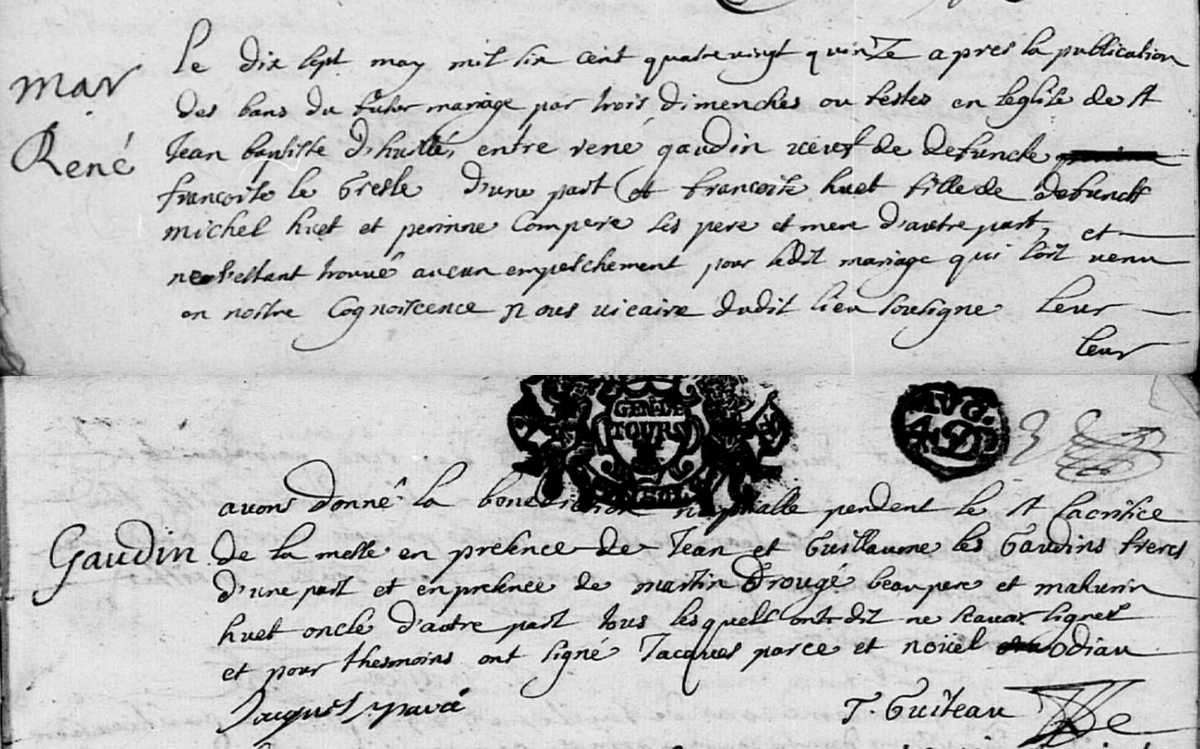 mar
René
Le dix sept may mil six cent quatre vingt quinze apres la publication
des bans du futur mariage par trois dimenches ou festes en leglise de st
Jean baptiste d'hussé, entre rené gaudin veuf de defuncte
françoise le Gresle d'une part et françoise huet fille de defunct
michel huet et perinne Compere ses pere et mere d'autre part, et
ne s'estant trouvé aucun empeschement pour ledit mariage qui soit venu
en nostre Cognoissence Nous vicaire dudit lieu sousigne leur
leur
GEN DE
TOURS
avons donné la benediction nuptialle pendent le st sacrifice
Gaudin
de la messe en presence de Jean et Guillaume les Gaudins freres
d'une part et en presence de martin Drougé beau pere et mathurin
huet oncle d'autre part tous lesquels ont dit ne scavoir signer
et pour thesmoins ont signé Jacques parce et noüel odiau
Jacques paré
T. Guiteau